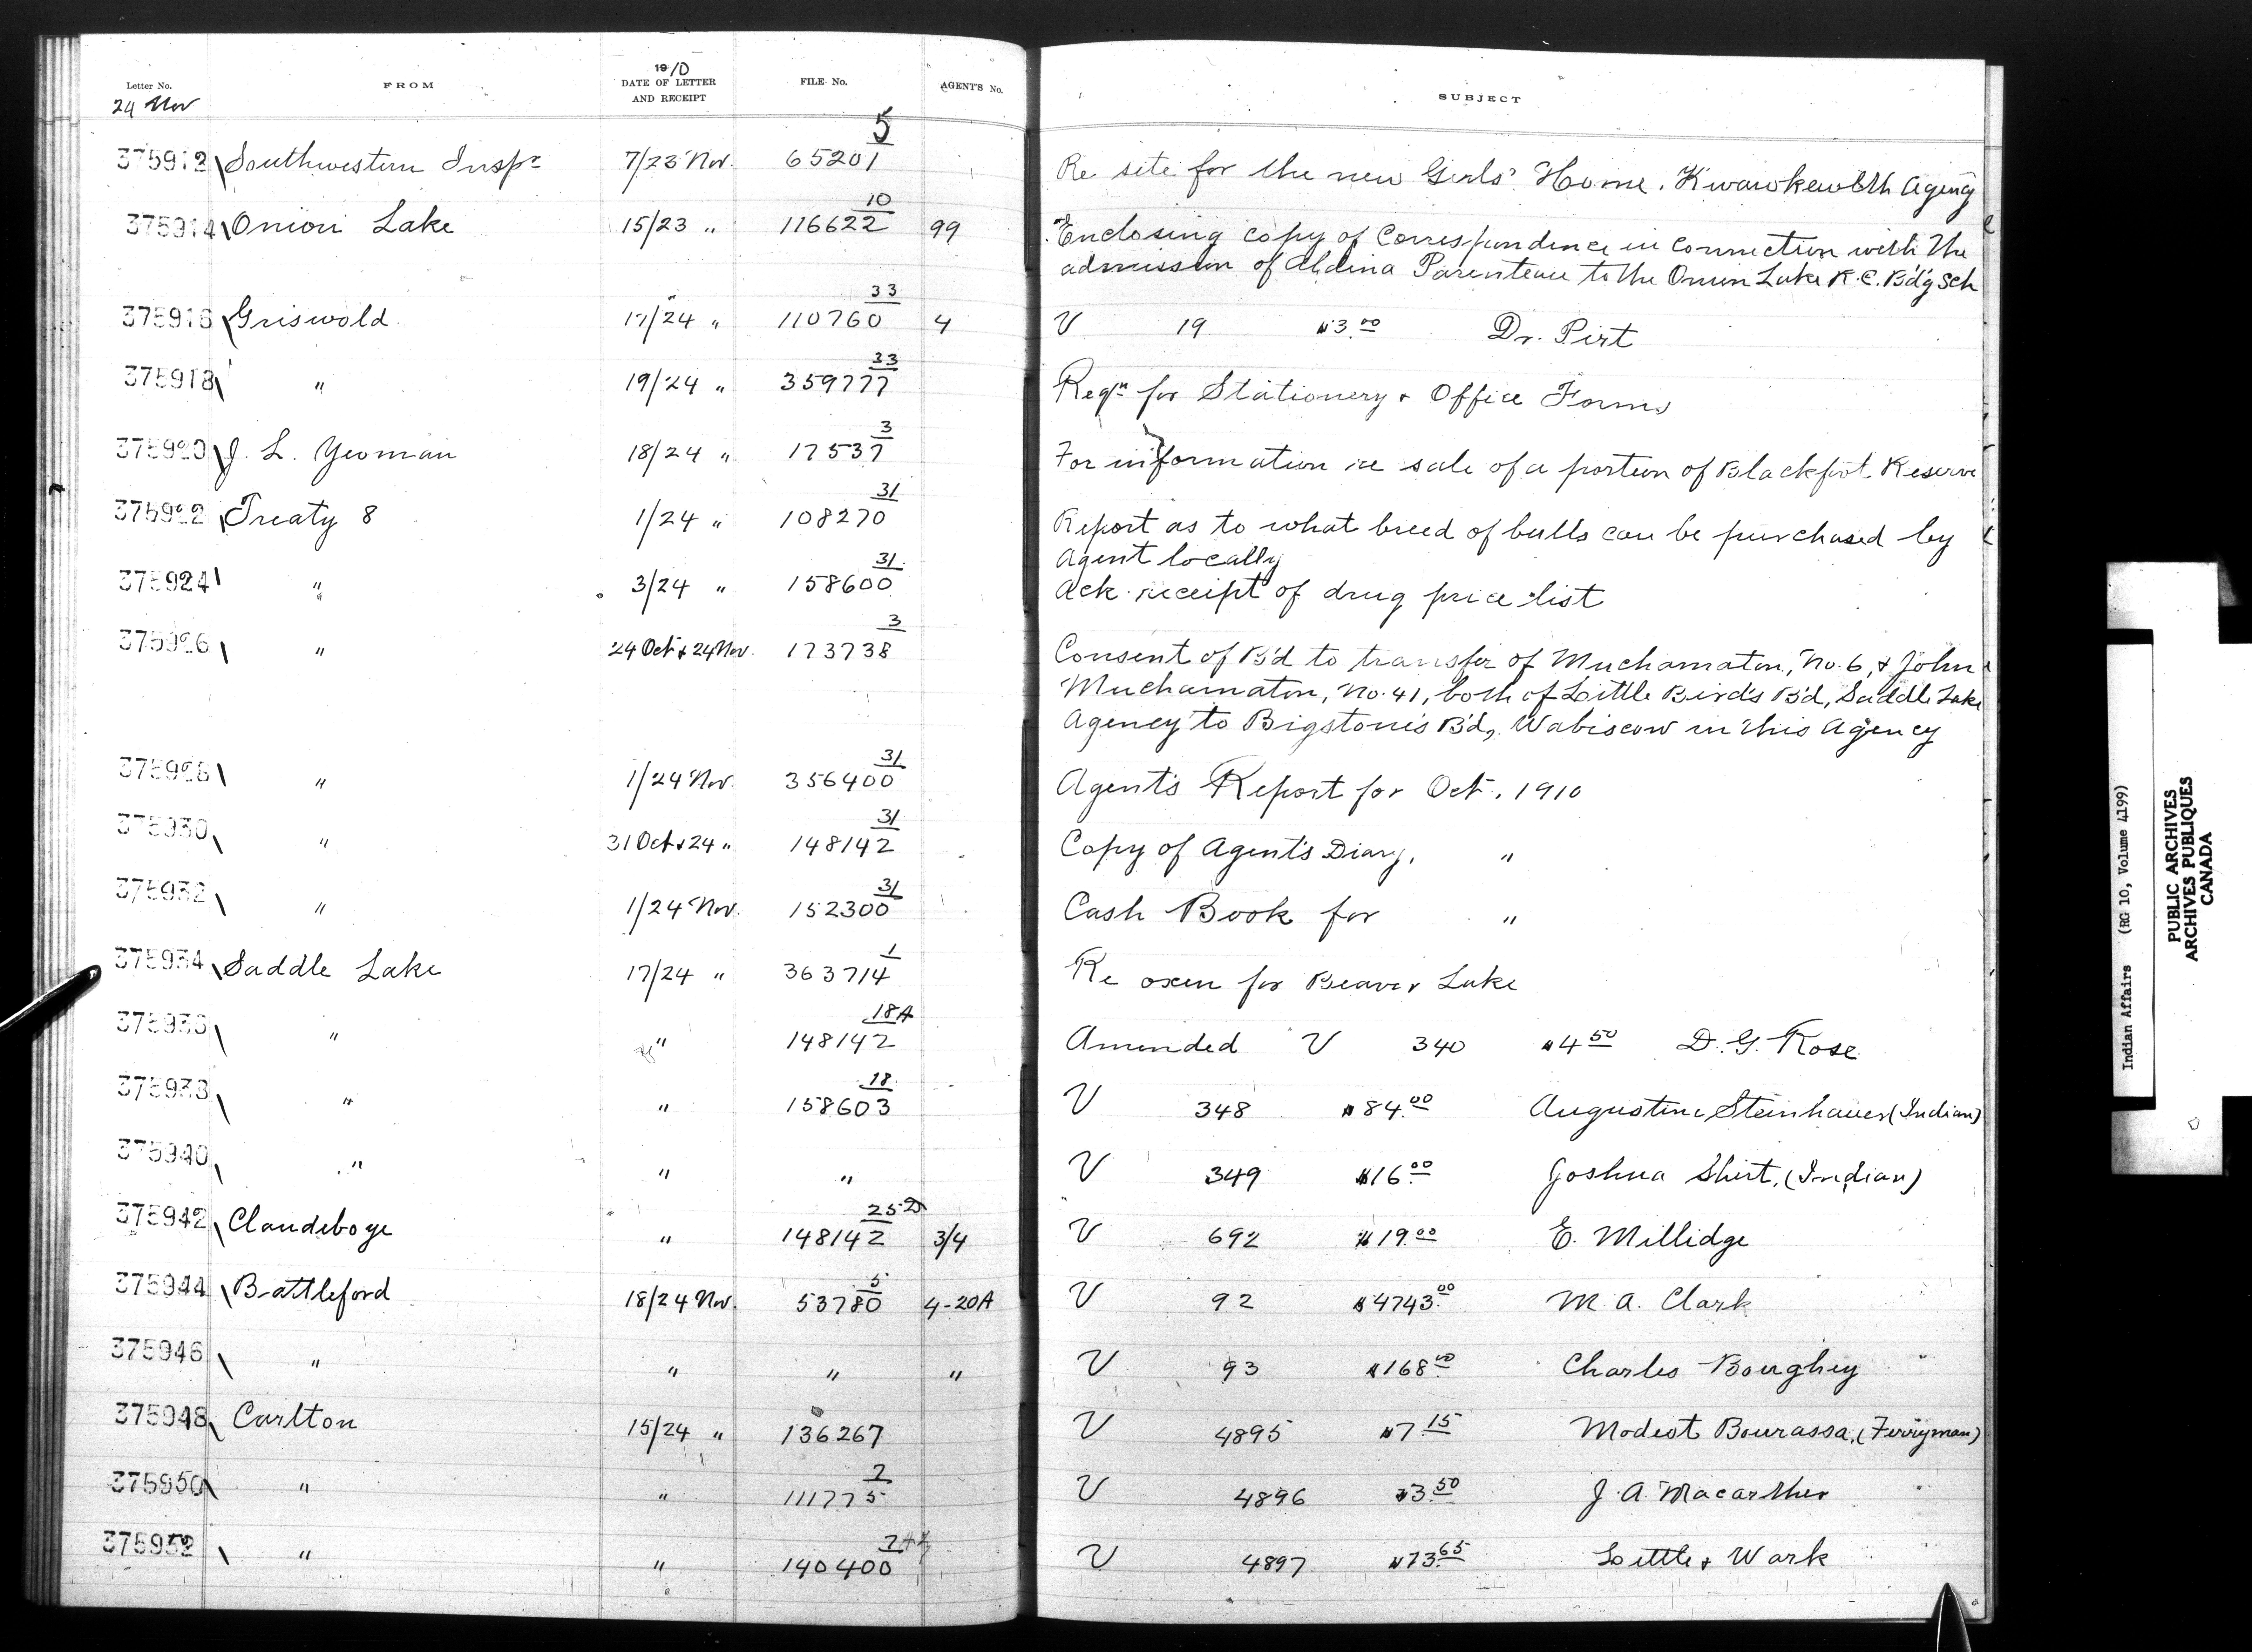 Letter No. FROM 1910 DATE OF LETTER AND RECEIPT FILE No. AGENT'S No. SUBJECT
24 Nov
375912 Southwestern Inspr 7/23 Nov. 65201 5 Re site for the new Girls' Home, Kwawkewlth Agency
375914 Onion Lake 15/23 " 116622 10 99 Enclosing copy of Correspondence in connection with the
admission of Parenteau to the Onion Lake R.C. B'd'g Sch
375916 Griswold 17/24 " 110760 33 4 V 19 $3.00 Dr. Pirt
375918 " 19/24 " 359777 33 Reqn for Stationery & Office Forms
375920 J. L. Yeoman 18/24 " 17537 3 For information re sale of a portion of Blackfoot Reserve
375922 Treaty 8 1/24 " 108270 31 Report as to what breed of bulls can be purchased by
Agent locally
375924 " 3/24 " 158600 31 Ack receipt of drug price list
375926 " 24 Oct & 24 Nov. 173738 3 Consent of B'd to transfer of Muchamaton, No. 6, & John
Muchamaton, No. 41, both of Little Bird's B'd, Saddle Lake
Agency to Bigstone's B'd, Wabiscow in this Agency
375928 " 1/24 Nov. 356400 31 Agent's Report for Oct. 1910
375930 " 31 Oct & 24 " 148142 31 Copy of Agent's Diary, "
375932 " 1/24 Nov. 152300 31 Cash Book for "
375934 Saddle Lake 17/24 " 363714 1 Re oxen for Beaver Lake
375936 " " 148142 18A Amended V 340 $4.50 D. G. Rose
375938 " " 158603 18 V 348 $84.00 Augustine Steinhauer (Indian)
375940 " " " V 349 $16.00 Joshua Shirt, (Indian)
375942 Clandeboye " 148142 25-D 3/4 V 692 $19.00 E. Millidge
375944 Battleford 18/24 Nov. 53780 5 4-20A V 92 $4743.00 M. A. Clark
375946 " " " " V 93 $168.00 Charles Boughey
375948 Carlton 15/24 " 136267 V 4895 $7.15 Modest Bourassa, (Ferryman)
375950 " " 111775 2 V 4896 $3.50 J. A. Macarthur
375952 " " 140400 V 4897 $73.65 Little & Wark
Indian Affairs (RG 10, Volume 4199)
PUBLIC ARCHIVES
ARCHIVES PUBLIQUES
CANADA